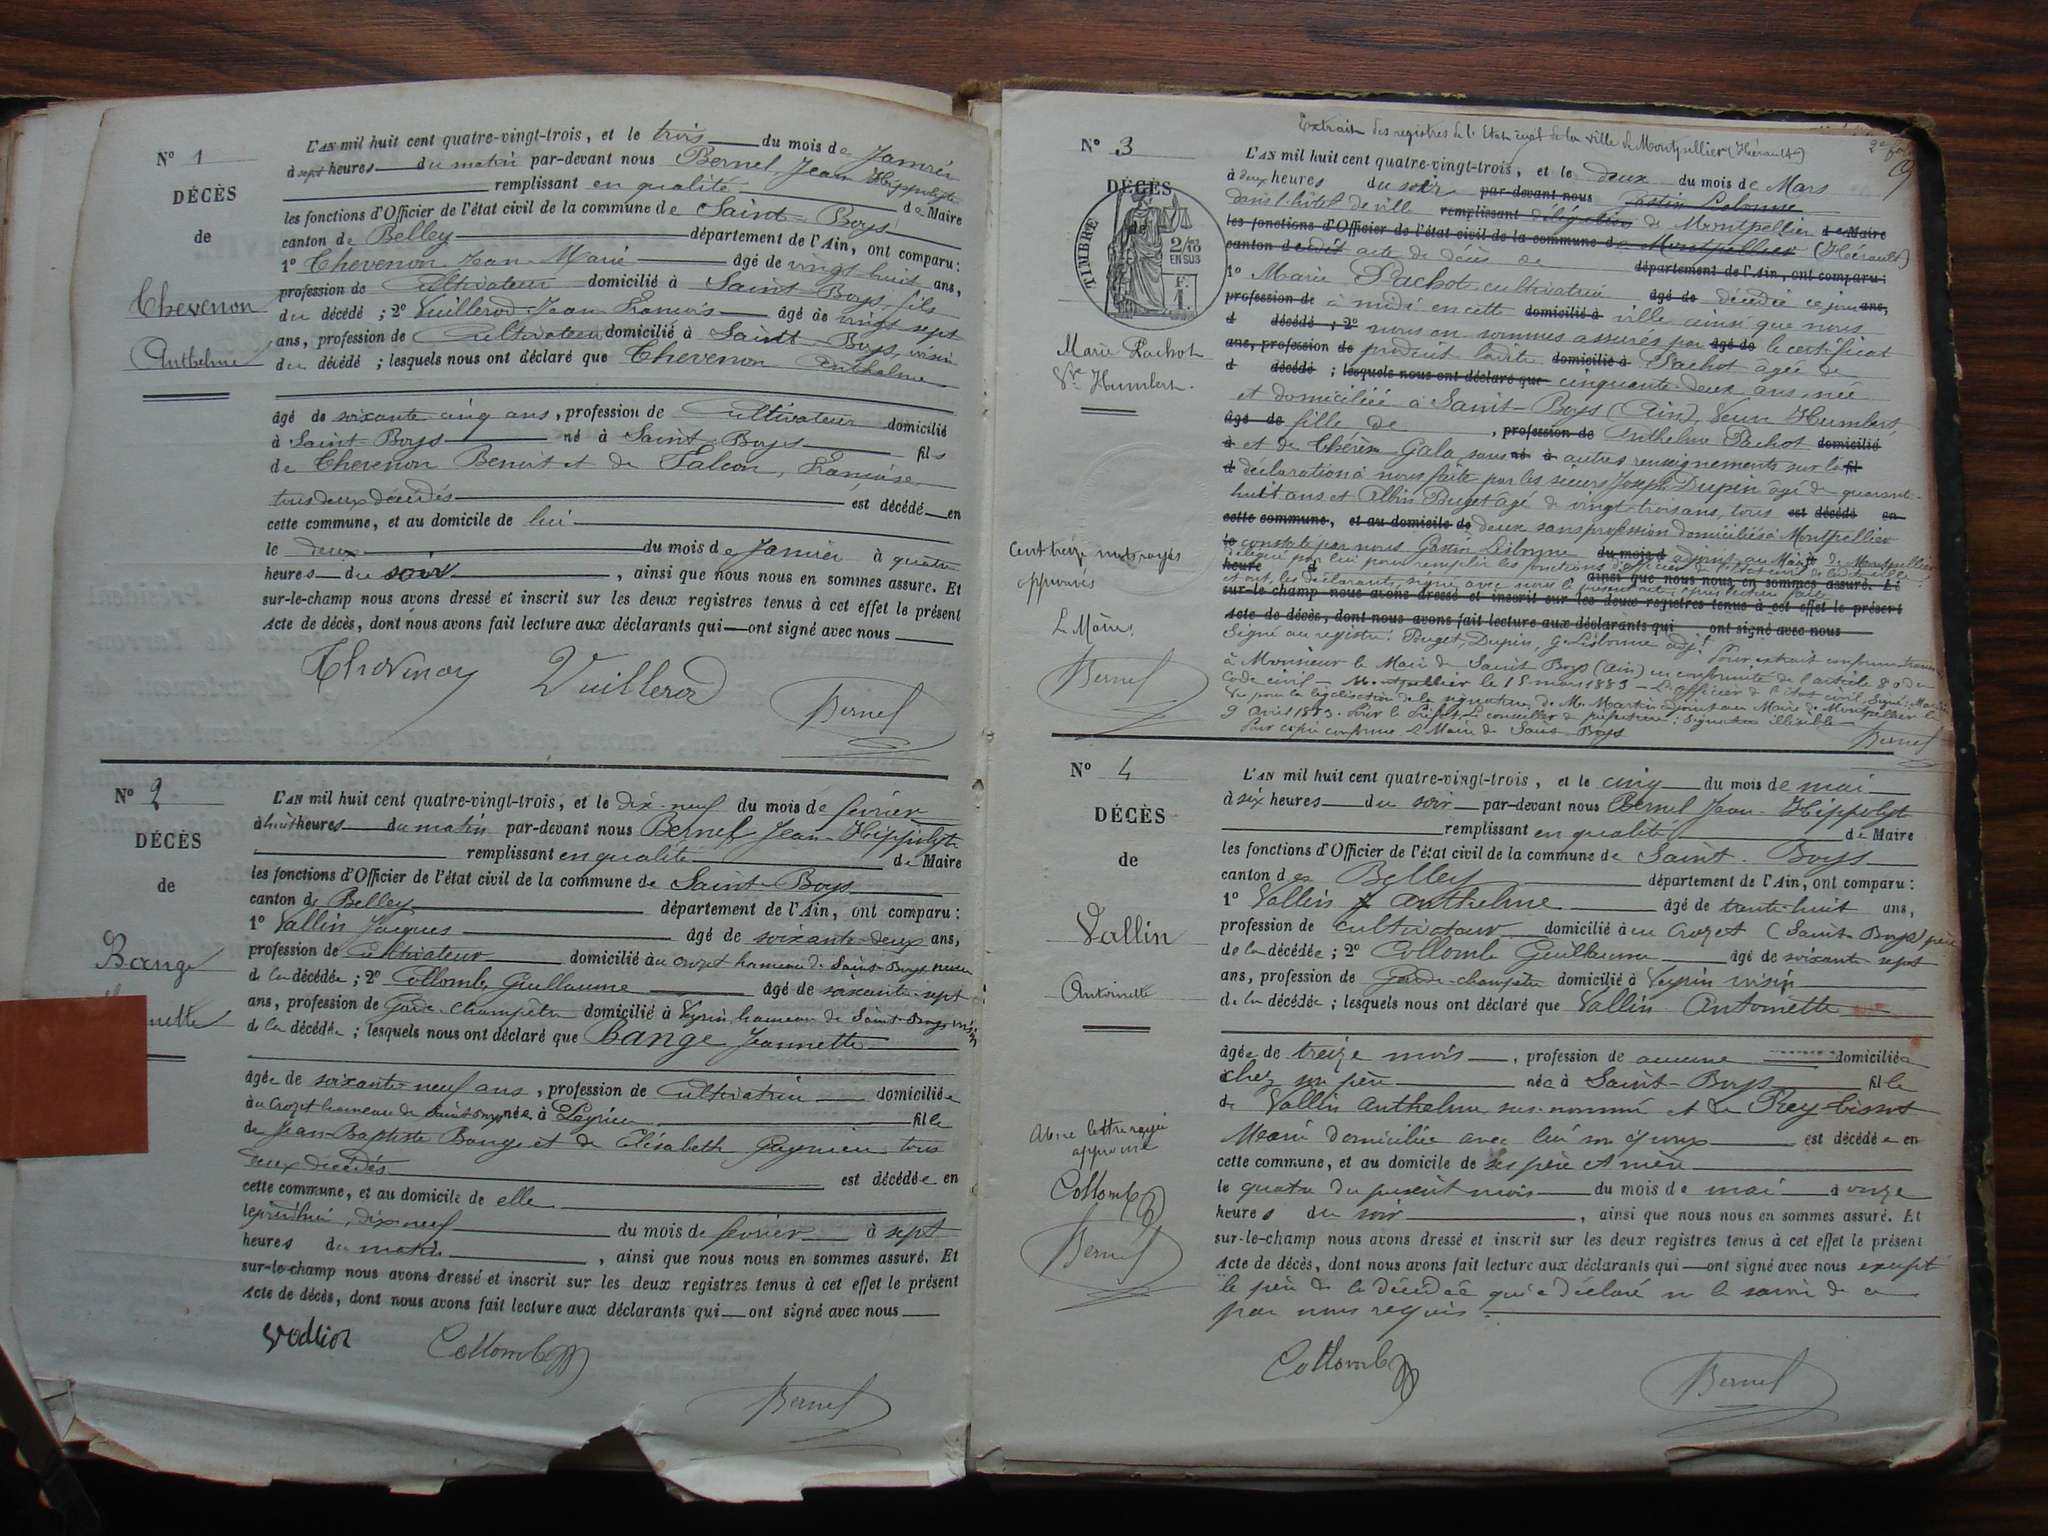 N° 1
DÉCÈS
de
Chevenon
Anthelme
L'AN mil huit cent quatre-vingt-trois, et le trois du mois de Janvier
à sept heures du matin par-devant nous Bernel, Jean Hippolyte
remplissant en qualité de Maire
les fonctions d'Officier de l'état civil de la commune de Saint-Boys
canton de Belley département de l'Ain, ont comparu :
1° Chevenon Jean-Marie âgé de vingt huit ans,
profession de Cultivateur domicilié à Saint-Boys, fils
du décédé ; 2° Vuillerod Jean François âgé de vingt sept
ans, profession de Cultivateur domicilié à Saint-Boys, voisin
du décédé ; lesquels nous ont déclaré que Chevenon Anthelme
âgé de soixante cinq ans, profession de Cultivateur domicilié
à Saint-Boys né à Saint-Boys fils
de Chevenon Benoit et de Falcon, Françoise
tous deux décédés est décédé en
cette commune, et au domicile de lui
le deux du mois de Janvier à quatre
heures du soir, ainsi que nous nous en sommes assuré. Et
sur-le-champ nous avons dressé et inscrit sur les deux registres tenus à cet effet le présent
Acte de décès, dont nous avons fait lecture aux déclarants qui ont signé avec nous
Chevenon Vuillerod
Bernel
N° 2
DÉCÈS
de
Bange
nette
L'AN mil huit cent quatre-vingt-trois, et le dix-neuf du mois de février
à huit heures du matin par-devant nous Bernel, Jean-Hippolyte
remplissant en qualité de Maire
les fonctions d'Officier de l'état civil de la commune de Saint-Boys
canton de Belley département de l'Ain, ont comparu :
1° Vallin Jacques âgé de soixante-deux ans,
profession de Cultivateur domicilié au Crozet hameau de Saint-Boys neveu
de la décédée ; 2° Collomb, Guillaume âgé de soixante-sept
ans, profession de Garde-champêtre domicilié à Veyrin, hameau de Saint-Boys voisin
de la décédée ; lesquels nous ont déclaré que Bange Jeannette
âgée de soixante-neuf ans, profession de Cultivatrice domiciliée
au Crozet hameau de Saint-Boys née à Peyrieu fille
de Jean-Baptiste Bange et de Elisabeth tous
deux décédés est décédée en
cette commune, et au domicile de elle
le dix-neuf du mois de février à sept
heures du matin, ainsi que nous nous en sommes assuré. Et
sur-le-champ nous avons dressé et inscrit sur les deux registres tenus à cet effet le présent
Acte de décès, dont nous avons fait lecture aux déclarants qui ont signé avec nous
Collomb
Bernel
Extrait des registres de l'Etat civil de la ville de Montpellier (Hérault)
N° 3
DÉCÈS
TIMBRE
2/10
EN SUS
F.
1.
Marie Pachot
Vve Humbert.
Cent treize mots rayés
approuvés
Le Maire,
Bernel
L'AN mil huit cent quatre-vingt-trois, et le deux du mois de Mars
à deux heures du soir par-devant nous Gaston Lisbonne
dans l'hôtel de ville remplissant délégation de Montpellier de Maire
les fonctions d'Officier de l'état civil de la commune de Montpellier (Hérault)
canton dudit acte de décès de département de l'Ain, ont comparu :
1° Marie Pachot cultivatrice âgé de décédée ce jour ans,
profession de à midi en cette domicilié à ville ainsi que nous
d décédé ; 2° nous en sommes assurés par âgé de le certificat
ans, profession de produit ladite domicilié à Pachot agée de
d décédé ; lesquels nous ont déclaré que cinquante-deux ans, née
et domiciliée à Saint-Boys (Ain), Veuve Humbert,
âgé de fille de, profession de Anthelme Pachot domicilié
à et de Thérèse Gala, sans né à autres renseignements sur la fil
d déclaration à nous faite par les sieurs Joseph Dupin âgé de quarante-
huit ans et Albin Puget âgé de vingt-trois ans, tous est décédé en
cette commune, et au domicile de deux sans profession domiciliés à Montpellier
le constaté par nous Gaston Lisbonne du mois d adjoint au Maire de Montpellier
délégué par lui pour remplir les fonctions d'officier de l'état civil de ladite ville
heure d, ainsi que nous nous en sommes assuré. Et
et ont, les déclarants, signé avec nous le présent acte, après lecture faite
sur-le-champ nous avons dressé et inscrit sur les deux registres tenus à cet effet le présent
Acte de décès, dont nous avons fait lecture aux déclarants qui ont signé avec nous
Signé au registre : Puget, Dupin, G. Lisbonne adjt. Pour extrait conforme
à Monsieur le Maire de Saint Boys (Ain) en conformité de l'article 80 du
Code civil — Montpellier le 15 mars 1883 — L'officier de l'état civil Signé : Martin
Vu pour la légalisation de la signature de M. Martin adjoint au Maire de Montpellier le
9 Avril 1883. Pour le Préfet, le conseiller de préfecture : Signature illisible
Pour copie conforme Le Maire de Saint-Boys
Bernel
N° 4
DÉCÈS
de
Vallin
Antoinette
lettre rayée
approuvé
Collomb
Bernel
L'AN mil huit cent quatre-vingt-trois, et le cinq du mois de mai
à six heures du soir par-devant nous Bernel Jean-Hippolyte
remplissant en qualité de Maire
les fonctions d'Officier de l'état civil de la commune de Saint-Boys
canton de Belley département de l'Ain, ont comparu :
1° Vallin Anthelme âgé de trente-huit ans,
profession de cultivateur domicilié au Crozet (Saint-Boys) père
de la décédée ; 2° Collomb Guillaume âgé de soixante sept
ans, profession de Garde-champêtre domicilié à Veyrin voisin
de la décédée ; lesquels nous ont déclaré que Vallin Antoinette
âgée de treize mois, profession de aucune domiciliée
chez son père née à Saint-Boys fille
de Vallin Anthelme sus-nommé et de Rey-bissot
Marie domiciliée avec lui est décédée en
cette commune, et au domicile de ses père et mère
le quatre du présent mois du mois de mai à onze
heures du soir, ainsi que nous nous en sommes assuré. Et
sur-le-champ nous avons dressé et inscrit sur les deux registres tenus à cet effet le présent
Acte de décès, dont nous avons fait lecture aux déclarants qui ont signé avec nous excepté
le père de la décédée qui a déclaré ne le savoir de ce
par nous requis.
Collomb
Bernel